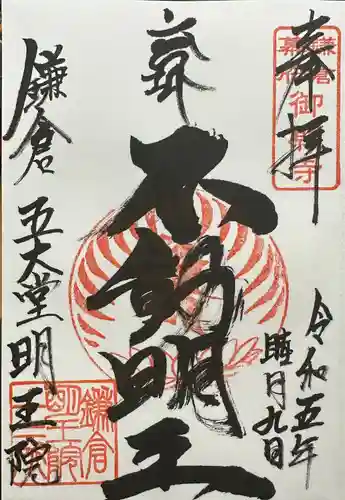 奉拝
鎌倉
幕府
御願寺
令和五年
睦月九日
不動明王
鎌倉 五大堂明王院
鎌倉
明王院